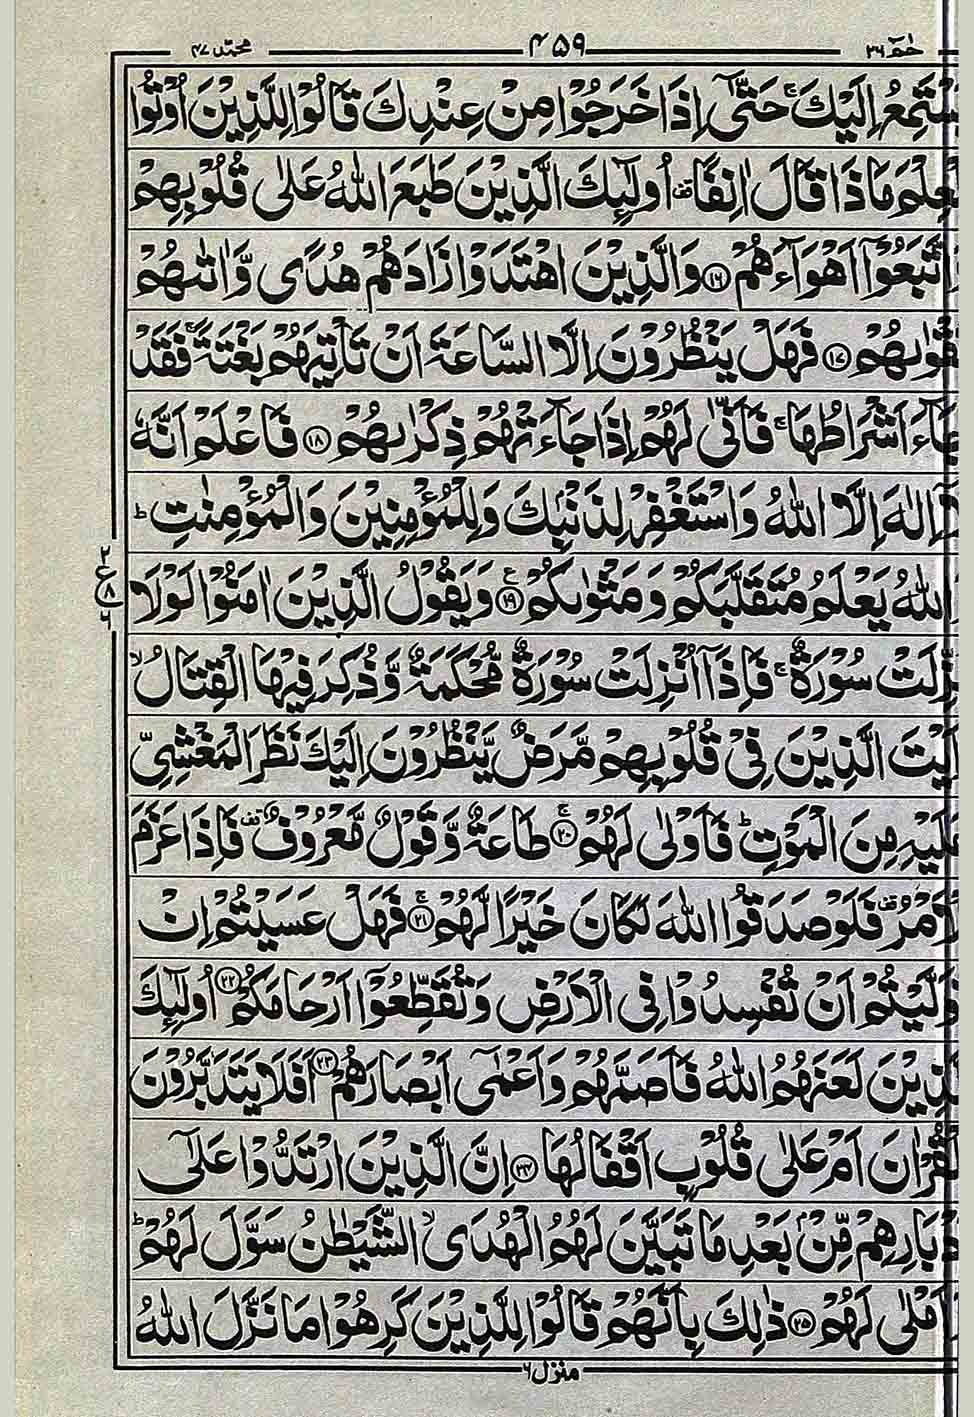 حٰمٓ ٢٦ ٤٥٩ محمّد ٤٧
يَّسْتَمِعُ اِلَيْكَ ۚ حَتّٰۤى اِذَا خَرَجُوْا مِنْ عِنْدِكَ قَالُوْا لِلَّذِيْنَ اُوْتُوا
الْعِلْمَ مَاذَا قَالَ اٰنِفًا ۫ اُولٰٓئِكَ الَّذِيْنَ طَبَعَ اللّٰهُ عَلٰى قُلُوْبِهِمْ
وَاتَّبَعُوْۤا اَهْوَآءَهُمْ ۝۱۶ وَالَّذِيْنَ اهْتَدَوْا زَادَهُمْ هُدًى وَّاٰتٰىهُمْ
تَقْوٰىهُمْ ۝۱۷ فَهَلْ يَنْظُرُوْنَ اِلَّا السَّاعَةَ اَنْ تَاْتِيَهُمْ بَغْتَةً ۚ فَقَدْ
جَآءَ اَشْرَاطُهَا ۚ فَاَنّٰى لَهُمْ اِذَا جَآءَتْهُمْ ذِكْرٰىهُمْ ۝۱۸ فَاعْلَمْ اَنَّهٗ
لَاۤ اِلٰهَ اِلَّا اللّٰهُ وَاسْتَغْفِرْ لِذَنْۢبِكَ وَلِلْمُؤْمِنِيْنَ وَالْمُؤْمِنٰتِ ؕ
وَاللّٰهُ يَعْلَمُ مُتَقَلَّبَكُمْ وَمَثْوٰىكُمْ ۝۱۹ وَيَقُوْلُ الَّذِيْنَ اٰمَنُوْا لَوْلَا
نُزِّلَتْ سُوْرَةٌ ۚ فَاِذَاۤ اُنْزِلَتْ سُوْرَةٌ مُّحْكَمَةٌ وَّذُكِرَ فِيْهَا الْقِتَالُ ۙ
رَاَيْتَ الَّذِيْنَ فِيْ قُلُوْبِهِمْ مَّرَضٌ يَّنْظُرُوْنَ اِلَيْكَ نَظَرَ الْمَغْشِيِّ
عَلَيْهِ مِنَ الْمَوْتِ ؕ فَاَوْلٰى لَهُمْ ۝۲۰ طَاعَةٌ وَّقَوْلٌ مَّعْرُوْفٌ ۫ فَاِذَا عَزَمَ
الْاَمْرُ ۫ فَلَوْ صَدَقُوا اللّٰهَ لَكَانَ خَيْرًا لَّهُمْ ۝۲۱ فَهَلْ عَسَيْتُمْ اِنْ
تَوَلَّيْتُمْ اَنْ تُفْسِدُوْا فِي الْاَرْضِ وَتُقَطِّعُوْۤا اَرْحَامَكُمْ ۝۲۲ اُولٰٓئِكَ
الَّذِيْنَ لَعَنَهُمُ اللّٰهُ فَاَصَمَّهُمْ وَاَعْمٰۤى اَبْصَارَهُمْ ۝۲۳ اَفَلَا يَتَدَبَّرُوْنَ
الْقُرْاٰنَ اَمْ عَلٰى قُلُوْبٍ اَقْفَالُهَا ۝۲۴ اِنَّ الَّذِيْنَ ارْتَدُّوْا عَلٰۤى
اَدْبَارِهِمْ مِّنْۢ بَعْدِ مَا تَبَيَّنَ لَهُمُ الْهُدَى ۙ الشَّيْطٰنُ سَوَّلَ لَهُمْ ؕ
وَاَمْلٰى لَهُمْ ۝۲۵ ذٰلِكَ بِاَنَّهُمْ قَالُوْا لِلَّذِيْنَ كَرِهُوْا مَا نَزَّلَ اللّٰهُ
٢
ع ٨
٦
منزل ٦